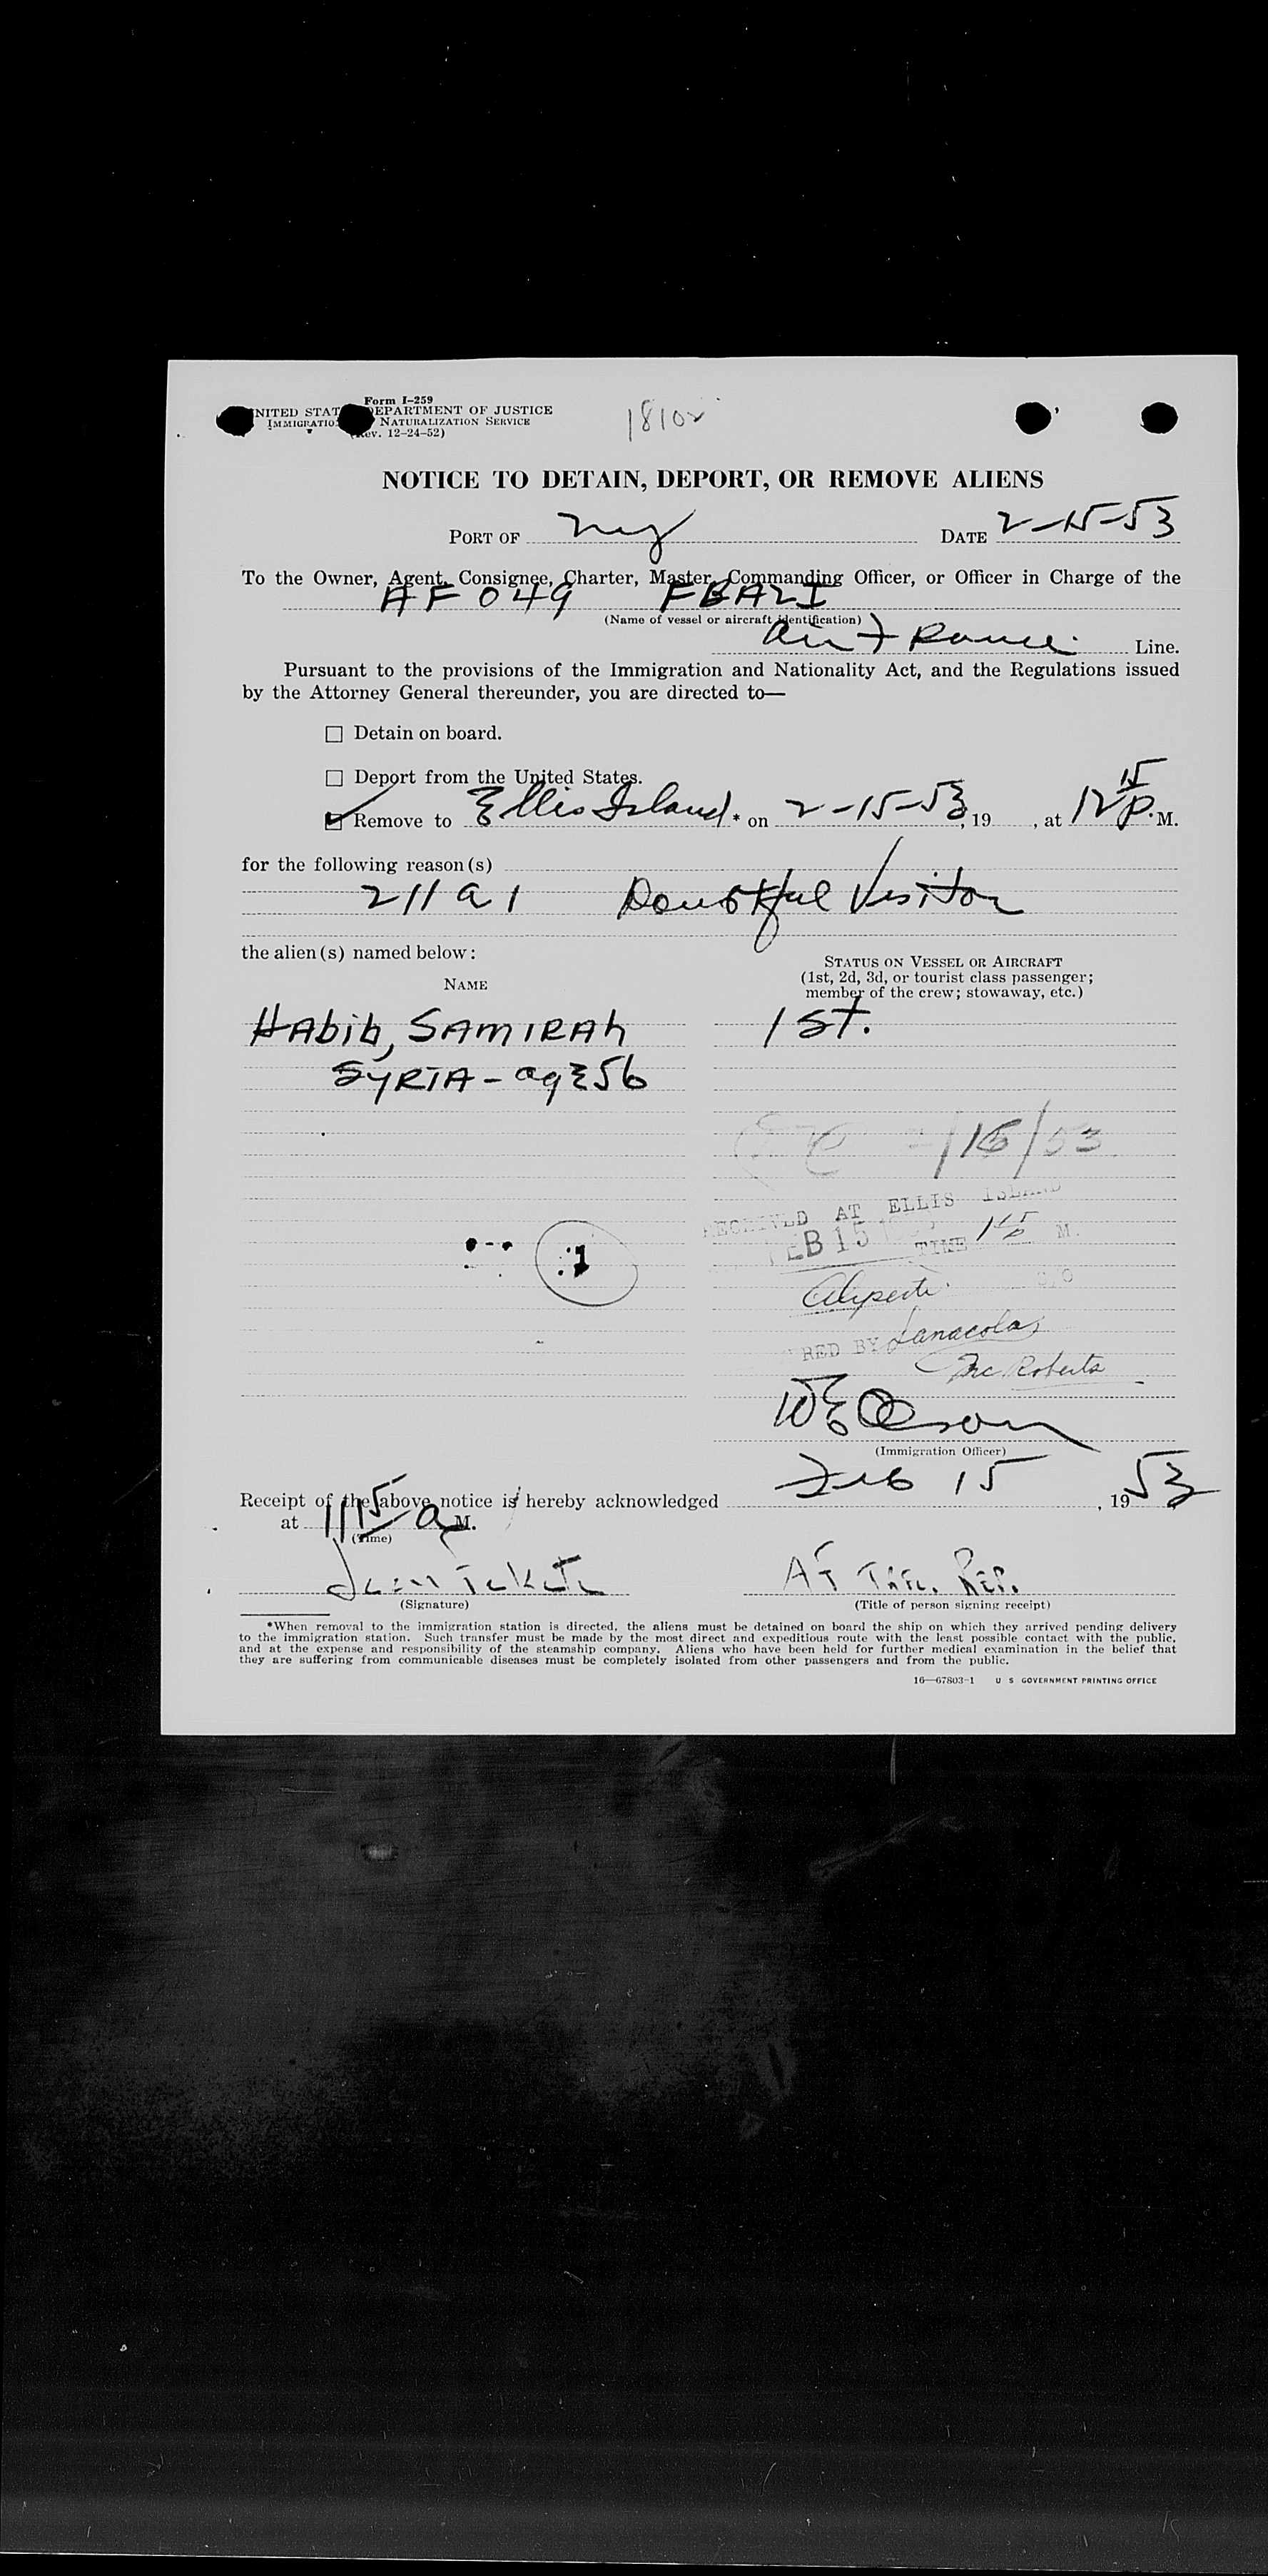 Form I-259
NITED STAT DEPARTMENT OF JUSTICE
IMMIGRATIO NATURALIZATION SERVICE
ev. 12-24-52)
18102
NOTICE TO DETAIN, DEPORT, OR REMOVE ALIENS
PORT OF NY DATE 2-15-53
To the Owner, Agent, Consignee, Charter, Master, Commanding Officer, or Officer in Charge of the
AF 049 FBAZI
(Name of vessel or aircraft identification)
Air France Line.
Pursuant to the provisions of the Immigration and Nationality Act, and the Regulations issued
by the Attorney General thereunder, you are directed to—
☐ Detain on board.
☐ Deport from the United States.
☑ Remove to Ellis Island * on 2-15-53, 19 , at 12 15 P. M.
for the following reason(s)
211 a 1 Doubtful Visitor
the alien(s) named below:
NAME
STATUS ON VESSEL OR AIRCRAFT
(1st, 2d, 3d, or tourist class passenger;
member of the crew; stowaway, etc.)
HAbib, SAMIRAh 1st.
SYRIA - age 56
/15/53
RECEIVED AT ELLIS ISLAND
FEB 15 TIME 1 15 P M.
1
RED BY Lanacola
Mc Roberts
W E Olson
(Immigration Officer)
Receipt of the above notice is hereby acknowledged Feb 15, 19 53
at 11 15 a M.
(Time)
AF Trfc. Rep.
(Signature) (Title of person signing receipt)
*When removal to the immigration station is directed, the aliens must be detained on board the ship on which they arrived pending delivery
to the immigration station. Such transfer must be made by the most direct and expeditious route with the least possible contact with the public,
and at the expense and responsibility of the steamship company. Aliens who have been held for further medical examination in the belief that
they are suffering from communicable diseases must be completely isolated from other passengers and from the public.
16—67803-1 U S GOVERNMENT PRINTING OFFICE